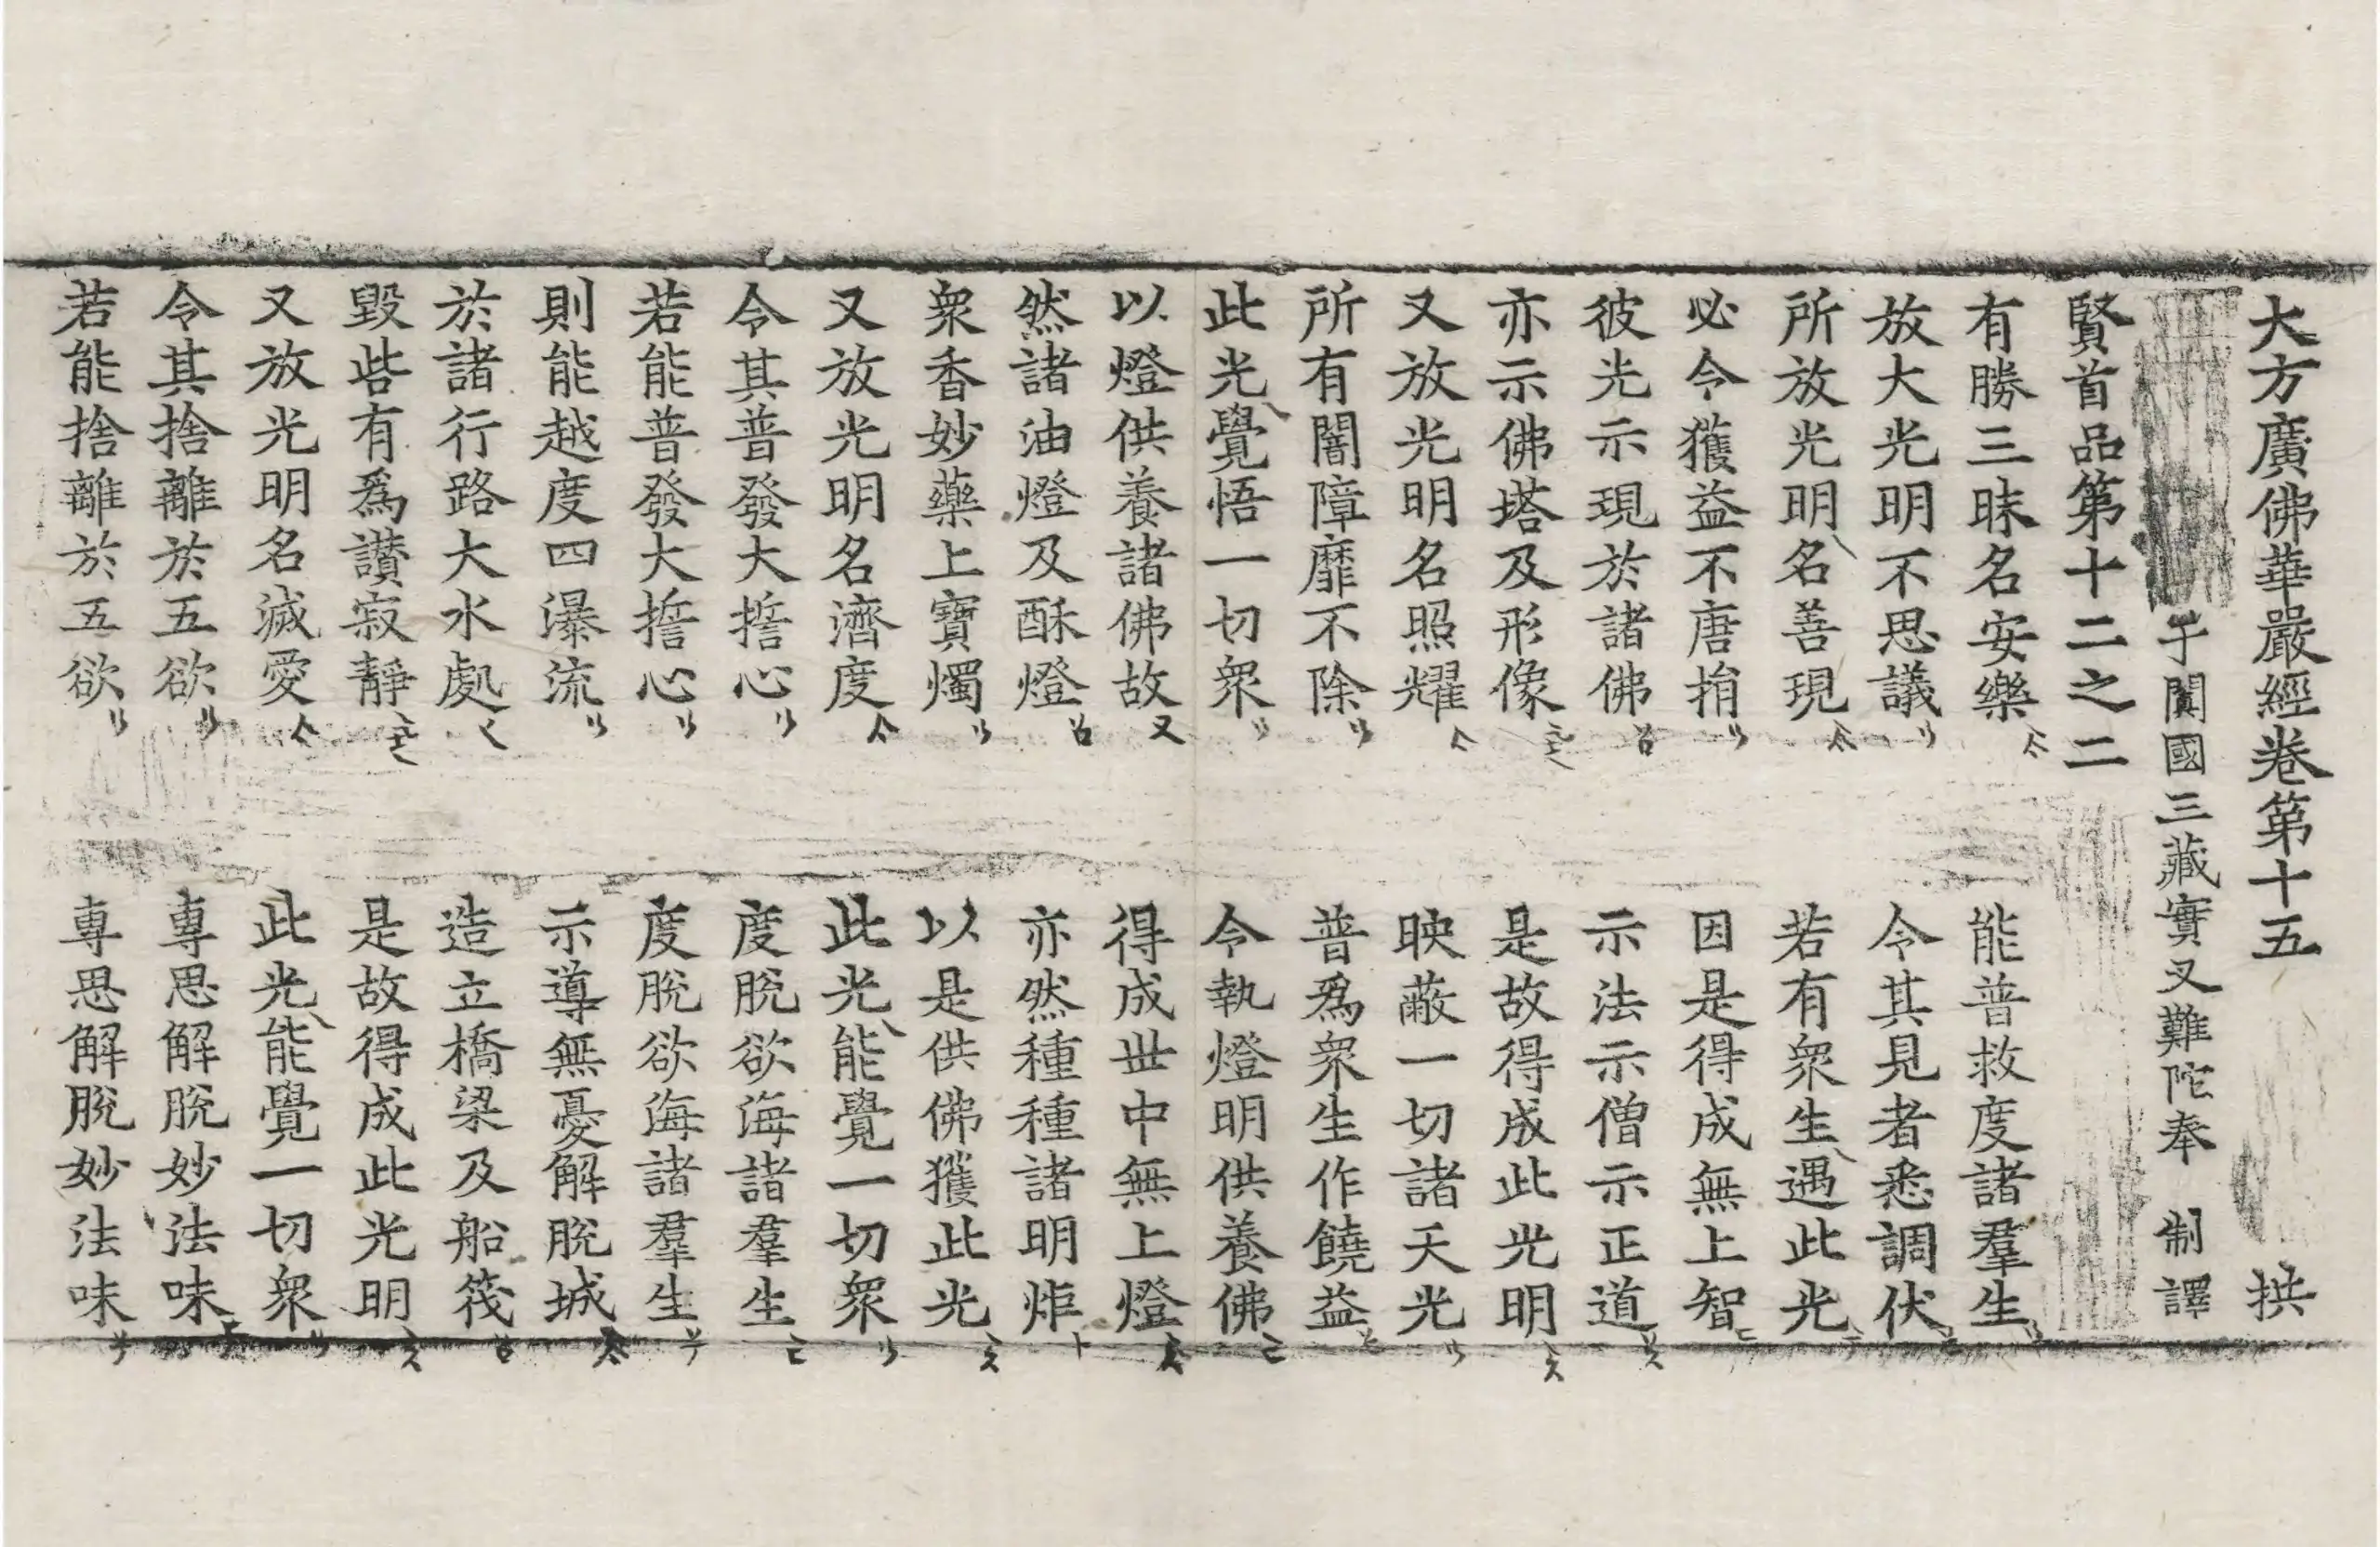 大方廣佛華嚴經卷第十五 拱
于闐國三藏實叉難陀奉 制譯
賢首品第十二之二
有勝三昧名安樂 能普救度諸羣生
放大光明不思議 令其見者悉調伏
所放光明名善現 若有衆生遇此光
必令獲益不唐捐 因是得成無上智
彼光示現於諸佛 示法示僧示正道
亦示佛塔及形像 是故得成此光明
又放光明名照耀 映蔽一切諸天光
所有闇障靡不除 普爲衆生作饒益
此光覺悟一切衆 令執燈明供養佛
以燈供養諸佛故 得成世中無上燈
然諸油燈及酥燈 亦然種種諸明炬
衆香妙藥上寶燭 以是供佛獲此光
又放光明名濟度 此光能覺一切衆
令其普發大誓心 度脫欲海諸羣生
若能普發大誓心 度脫欲海諸羣生
則能越度四瀑流 示導無憂解脫城
於諸行路大水處 造立橋梁及船筏
毀呰有爲讃寂靜 是故得成此光明
又放光明名滅愛 此光能覺一切衆
令其捨離於五欲 專思解脫妙法味
若能捨離於五欲 專思解脫妙法味